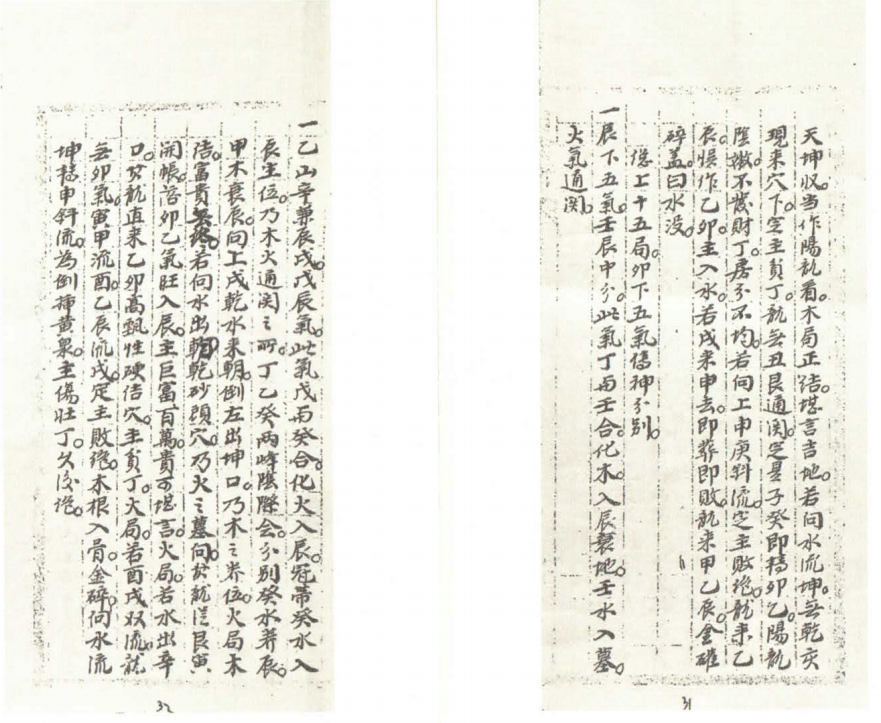 天坤収。当作陽龍看。木局正结。堪言吉地。若向水流坤。無乾亥
現来穴下。定主貧丁。龍無丑艮通関。定是子癸即轉卯乙。陽龍
陰嫩。不發財丁。房分不均。若向上申庚斜流。定主敗絶。龍来乙
辰。悮作乙卯。主入水。若戌来申去。即葬即敗。龍来甲乙辰。金確
碎蓋曰水没。
總上十五局。卯下五氣僞神分别。
一辰下五氣。壬辰中分。此氣丁與壬合化木。入辰衰地。壬水入墓。
火氣通関。
31
一乙山辛兼辰戌。戊辰氣。此氣戊與癸合化火。入辰冠帶。癸水入
辰主位。乃木火通関之所。丁乙癸兩峰陰際会分别。癸水莽辰。
甲木衰辰。向上戌乾水来朝。倒左出坤口。乃木之养位。火局木
结。富貴綿绝。若向水出乾。乾砂頭穴。乃火之墓向。於龍從艮寅
開帳。落卯乙氣旺入辰。主巨富百萬。貴可堪言。火局若水出辛
口。於龍直来。乙卯高飄性硬结穴。主貧丁。大局若酉戌双流。龍
無卯氣。寅甲流酉。乙辰流戌。定主敗絶。木根入骨。金碎。向水流
坤。穩申斜流。為倒揷黄泉。主傷壮丁。久後絶。
32